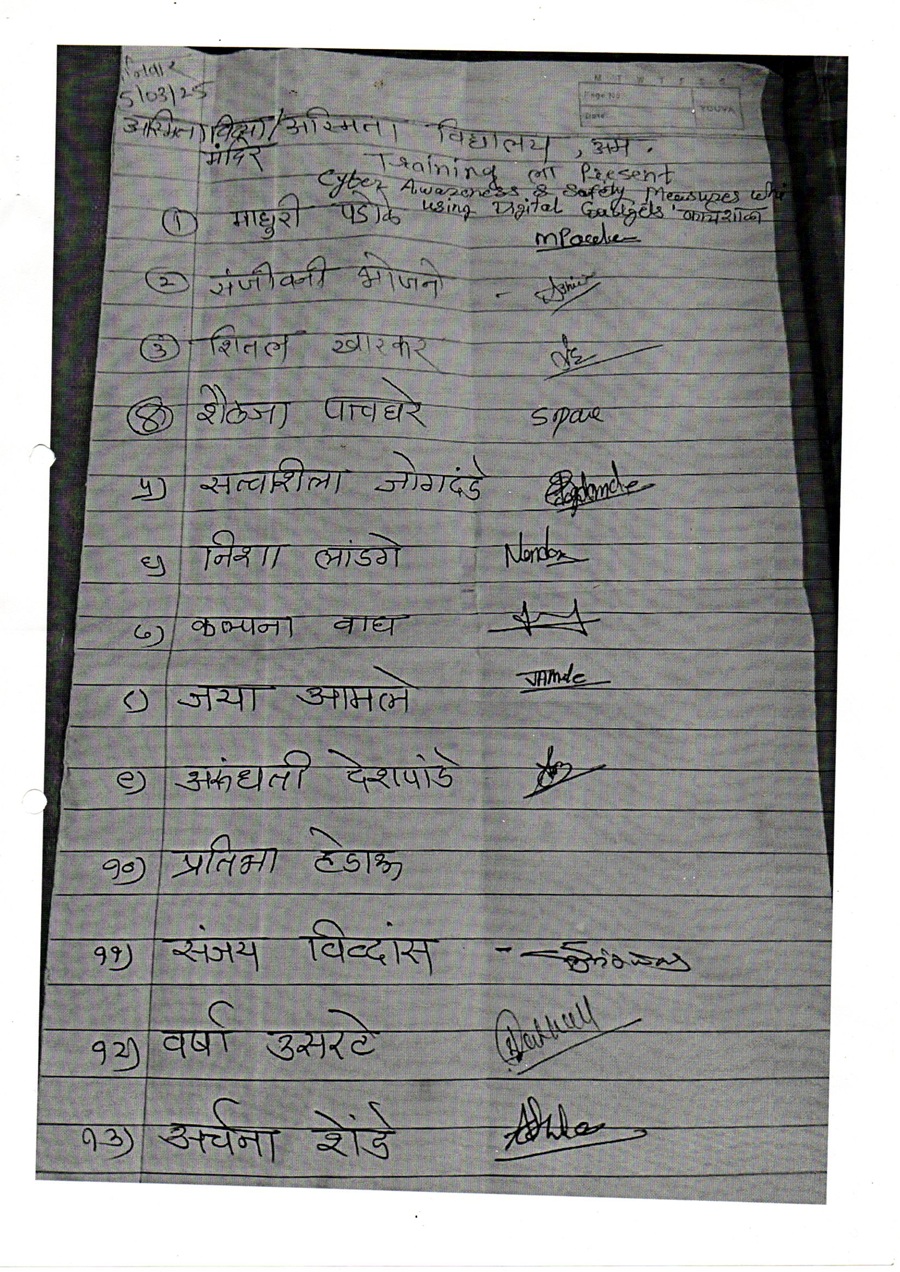 5/03/25
M T W T F S S
Page No.:
Date:
YOUVA
अस्मिता विद्या / अस्मिता विद्यालय, अम.
मंदिर
Training ला Present
Cyber Awareness & Safety Measures
using Digital Gadgets' कार्यशाळा
① माधुरी पडोके
② संजीवनी भोजने -
③ शितल खारकर
④ शैलजा पाचघरे
५) सत्वशिला जोगदंडे
६) निशा लांडगे
७) कल्पना वाघ
८) जया आमले JAmle
९) अरुंधती देशपांडे
१०) प्रतिमा हेडाऊ
११) संजय विव्दांस -
१२) वर्षा उसरटे
१३) अर्चना शेंडे